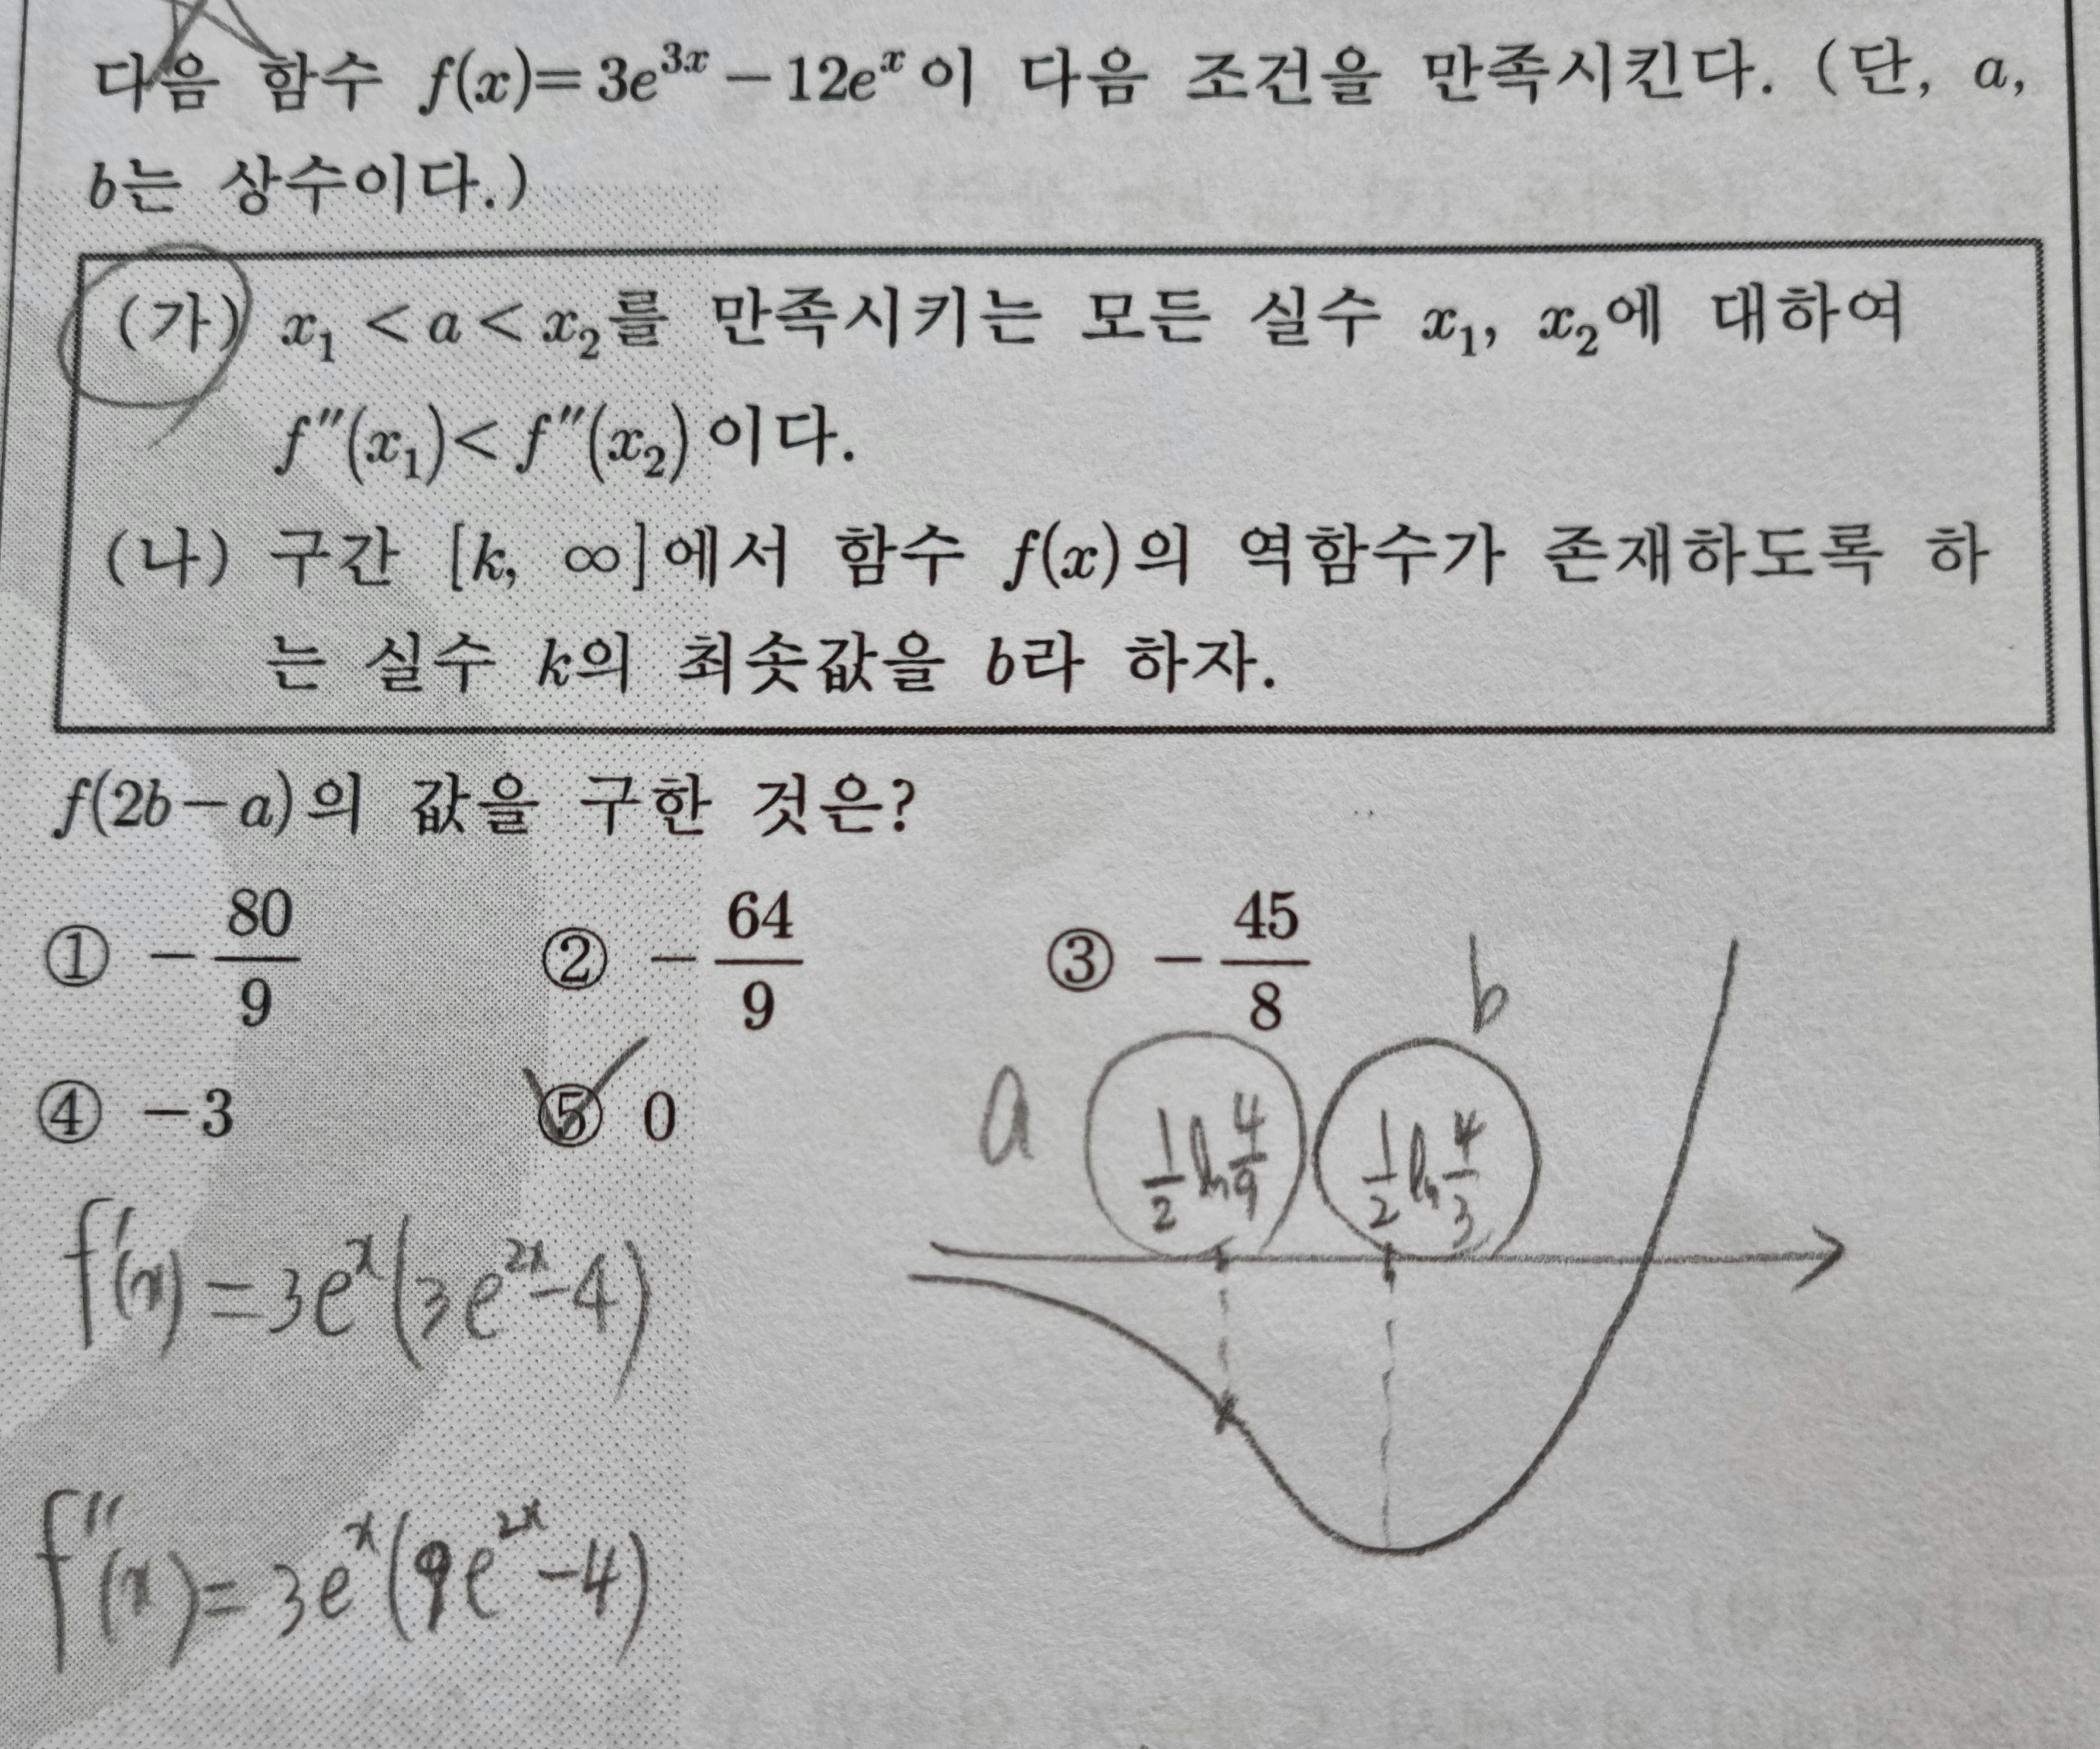 다음 함수 f(x)=3e^{3x}-12e^x이 다음 조건을 만족시킨다. (단, a,
b는 상수이다.)
(가) x₁<a<x₂를 만족시키는 모든 실수 x₁, x₂에 대하여
f″(x₁)<f″(x₂)이다.
(나) 구간 [k, ∞]에서 함수 f(x)의 역함수가 존재하도록 하
는 실수 k의 최솟값을 b라 하자.
f(2b-a)의 값을 구한 것은?
① -80/9 ② -64/9 ③ -45/8
④ -3 ⑤ 0
a 1/2 ln 4/9 b 1/2 ln 4/3
f′(x)=3e^x(3e^{2x}-4)
f″(x)=3e^x(9e^{2x}-4)